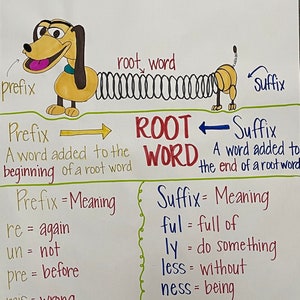 root word
prefix
suffix
Prefix
ROOT
WORD
Suffix
A word added to the
beginning of a root word
A word added to
the end of a root word
Prefix = Meaning
re = again
un = not
pre = before
mis = wrong
Suffix = Meaning
ful = full of
ly = do something
less = without
ness = being